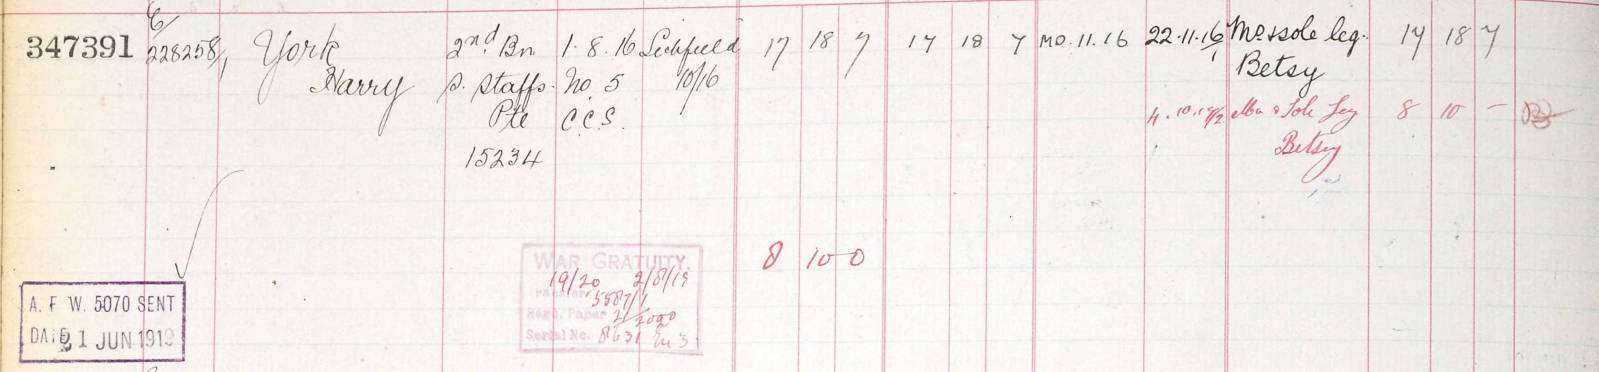 347391 E/ 228258/1 York 2nd Bn 1.8.16 Lichfield 17 18 7 17 18 7 MO.11.16 22.11.16 Mo & sole leg. 17 18 7
Harry S. Staffs. No. 5 10/16 Betsy
Pte C.C.S. 4.10.19 Mo & Sole Leg 8 10 -
15234 Betsy
8 10 0
WAR GRATUITY.
19/20 2/8/19
5587/1
Regd. Paper 21/2000
Serial No. 8631
A. F W. 5070 SENT
DATE 21 JUN 1919